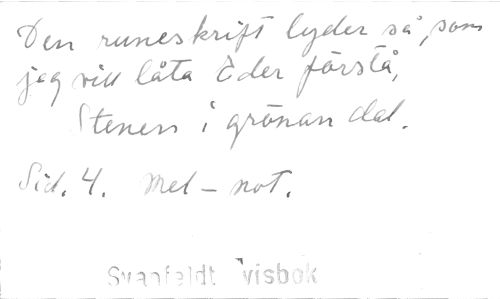 Den runeskrift lyder så, som
jag vill låta Eder förstå,
Stenen i grönan dal.
Sid. 4. Mel-not.
Svanfeldt visbok